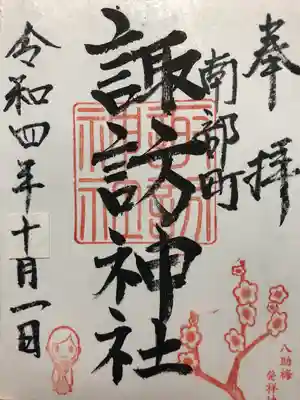 奉拝
南部町
諏訪神社
令和四年十月一日
八助梅
発祥地